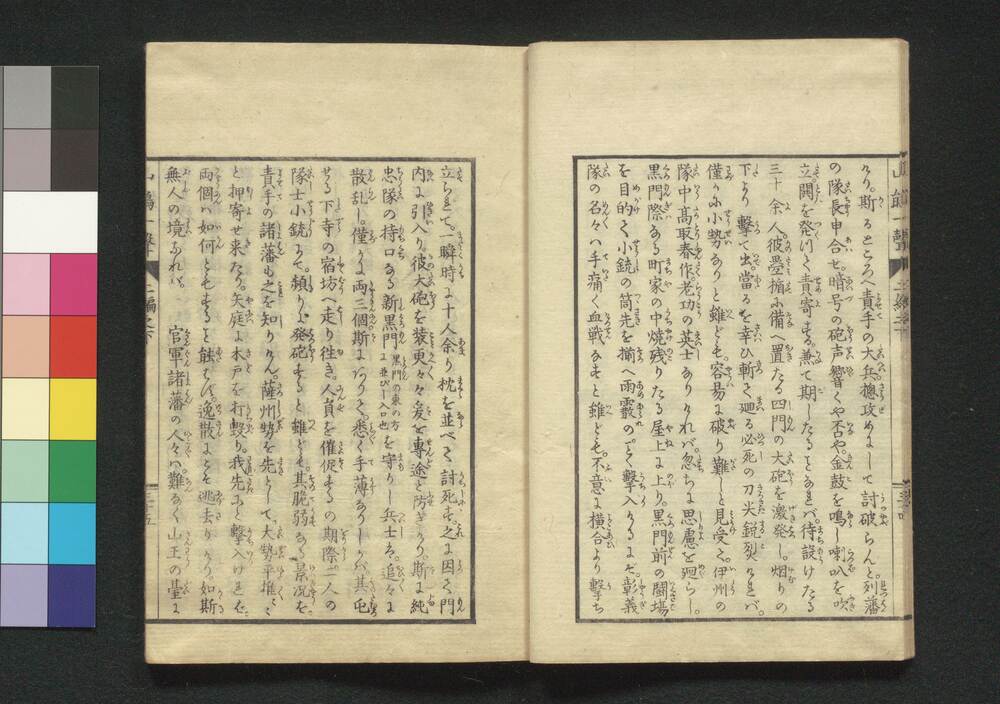 けり。斯るところへ責手の大兵、摠攻めにして討破らんと。列藩
の隊長申合せ、暗号の砲声響くや否や。金鼓を鳴し喇叭を吹
立、鬨を発けて責寄する。兼て期したることなれバ。待設けたる
三十余人。彼塁楯に備へ置たる四門の大砲を激発し。烟りの
下より撃て出、當るを幸ひ斬て廻る必死の刀尖鋭烈けれバ。
僅かに小勢なりと雖ども。容易に破り難しと見受て。伊州の
隊中高取春作老功の英士なりけれバ。忽ちに思慮を廻らし。
黒門際なる町家の中焼残りたる屋上に上り。黒門前の闘場
を目的て小銃の筒先を揃へ雨霰のごと撃入けるにぞ。彰義
隊の名々ハ手痛く血戦なすと雖ども。不意に横合より撃ち
立られて。一瞬時に十人余り枕を並べて討死す。之に因て門
内に引入り。彼大砲を装更々々爰を專途と防ぎけり。斯に純
忠隊の持口なる新黒門 黒門の東の方に並びし入口也 を守りし兵士ら。追々に
散乱し。僅かに両三個斯にありと。悉く手薄なりしかバ其屯
せる下寺の宿坊へ走り往き。人員を催促するの期際。一人の
隊士小銃にて。頻りに発砲すると雖ども。其脆弱なる景况を。
責手の諸藩も之を知りけん。薩州勢を先として。大勢平推に
と押寄せ来たり。矢庭に木戸を打毀り。我先にと撃入けれバ。
両個ハ如何ともすること能はず。逸散にこそ逃去りけり。如斯
無人の境なれバ。官軍諸藩の人々ハ。難なく山王の臺に